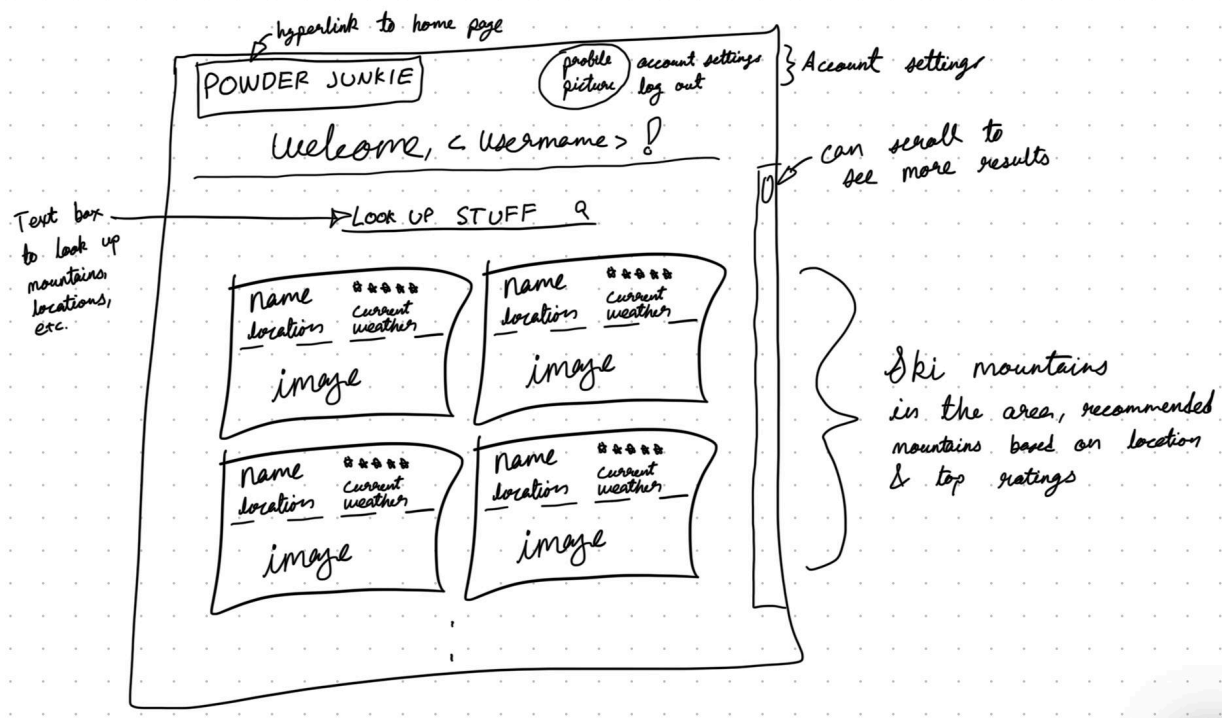 hyperlink to home page
POWDER JUNKIE
profile
picture
account settings
log out
Account settings
Welcome, < Username > !
can scroll to
see more results
Text box
to look up
mountains,
locations,
etc.
LOOK UP STUFF
name
location
current
weather
image
name
location
current
weather
image
name
location
current
weather
image
name
location
current
weather
image
Ski mountains
in the area, recommended
mountains based on location
& top ratings